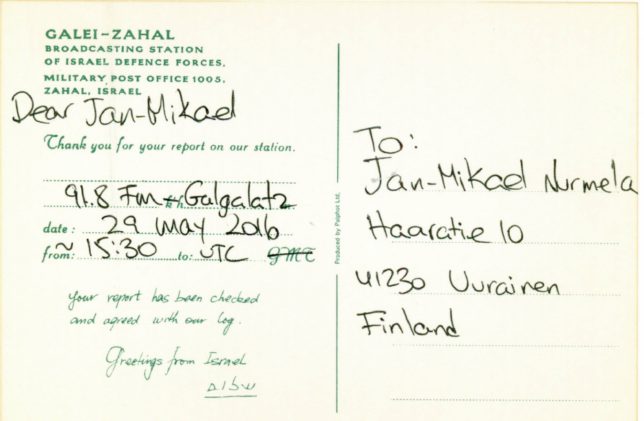 GALEI-ZAHAL
BROADCASTING STATION
OF ISRAEL DEFENCE FORCES.
MILITARY POST OFFICE 1005.
ZAHAL, ISRAEL
Dear Jan-Mikael
Thank you for your report on our station.
91.8 Fm Galgalatz
date: 29 May 2016
from: ~15:30 to: UTC GMT
Your report has been checked
and agreed with our log.
Greetings from Israel
שלום
Produced by Palphot Ltd.
To:
Jan-Mikael Nurmela
Haaratie 10
41230 Uurainen
Finland